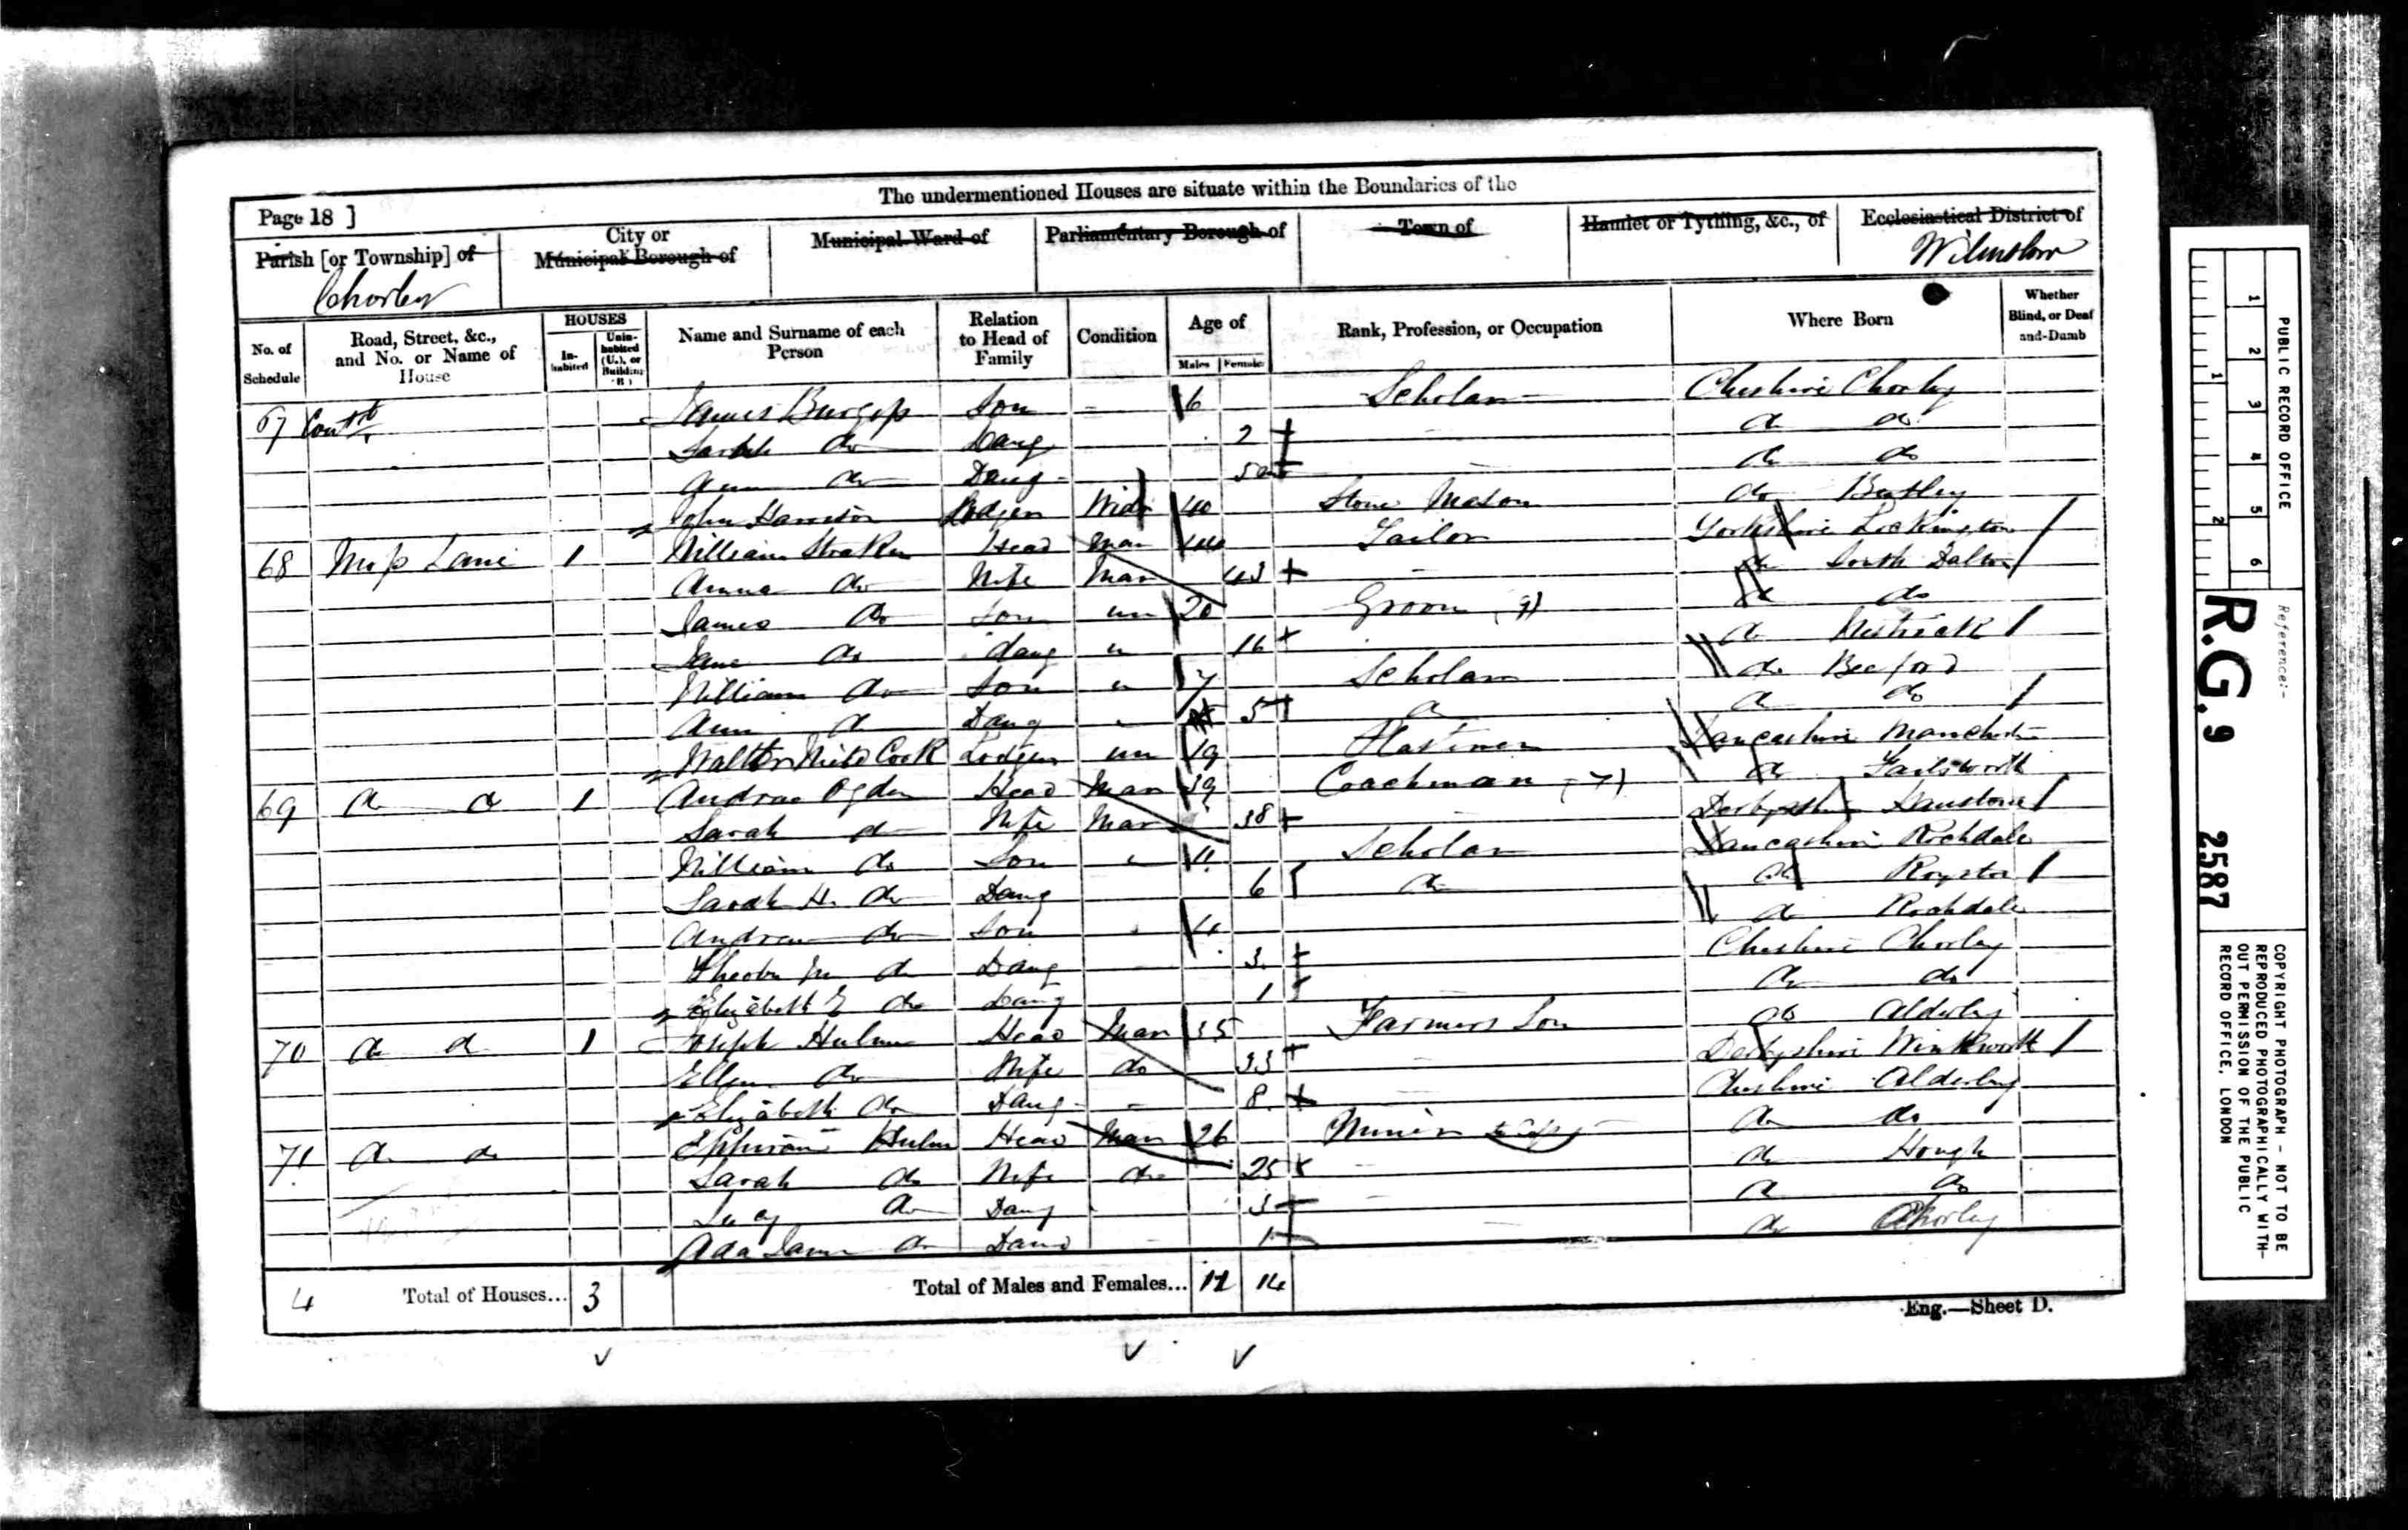 The undermentioned Houses are situate within the Boundaries of the
Page 18 ]
Parish [or Township] of
Chorley
City or
Municipal Borough of
Municipal Ward of
Parliamentary Borough of
Town of
Hamlet or Tything, &c., of
Ecclesiastical District of
Wilmslow
No. of Schedule
Road, Street, &c., and No. or Name of House
HOUSES
In-habited
Unin-habited (U.), or Building (B)
Name and Surname of each Person
Relation to Head of Family
Condition
Age of
Males
Females
Rank, Profession, or Occupation
Where Born
Whether Blind, or Deaf-and-Dumb
67 Contd James Burgess Son - 6 Scholar Cheshire Chorley
Sarah do Daug 2 do do
Ann do Daug do do
John Harrison Lodger Widr 40 Stone Mason do
68 Mop Lane 1 William Straker Head Mar 44 Tailor Yorkshire Lockington
Anna do Wife Mar 43 do South Dalton
James do Son un 20 Groom do do
Jane do daug 16 do
William do Son 7 Scholar do Beeford
Ann do Daug 5 do do do
Walter Cook Lodger un 19 Lancashire Manchester
69 do do 1 Andrew Ogden Head Mar 39 Coachman do Failsworth
Sarah do Wife Mar 38 Derbyshire
William do Son 11 Scholar Lancashire Rochdale
Sarah H. do Daug 6 do do Royston
Andrew do Son 4 do Rochdale
Pheobe M do Daug 3 Cheshire Chorley
Elizabeth E do Daug 1 do do
70 do do 1 Joseph Hulme Head Mar 35 Farmers Son do Alderley
Ellen do Wife do 33 Derbyshire
Elizabeth do Daug - 8 Cheshire Alderley
71 do do Ephraim Hulm Head Mar 26 Miner do do
Sarah do Wife do 25 do Hough
Lucy do Daug 3 do do
Ada Jane do Daug 1 do Chorley
4 Total of Houses... 3 Total of Males and Females... 11 14
Eng.—Sheet D.
PUBLIC RECORD OFFICE
1 2 3 4 5 6
1 2
Reference:-
R.G. 9 2587
COPYRIGHT PHOTOGRAPH - NOT TO BE
REPRODUCED PHOTOGRAPHICALLY WITH-
OUT PERMISSION OF THE PUBLIC
RECORD OFFICE, LONDON